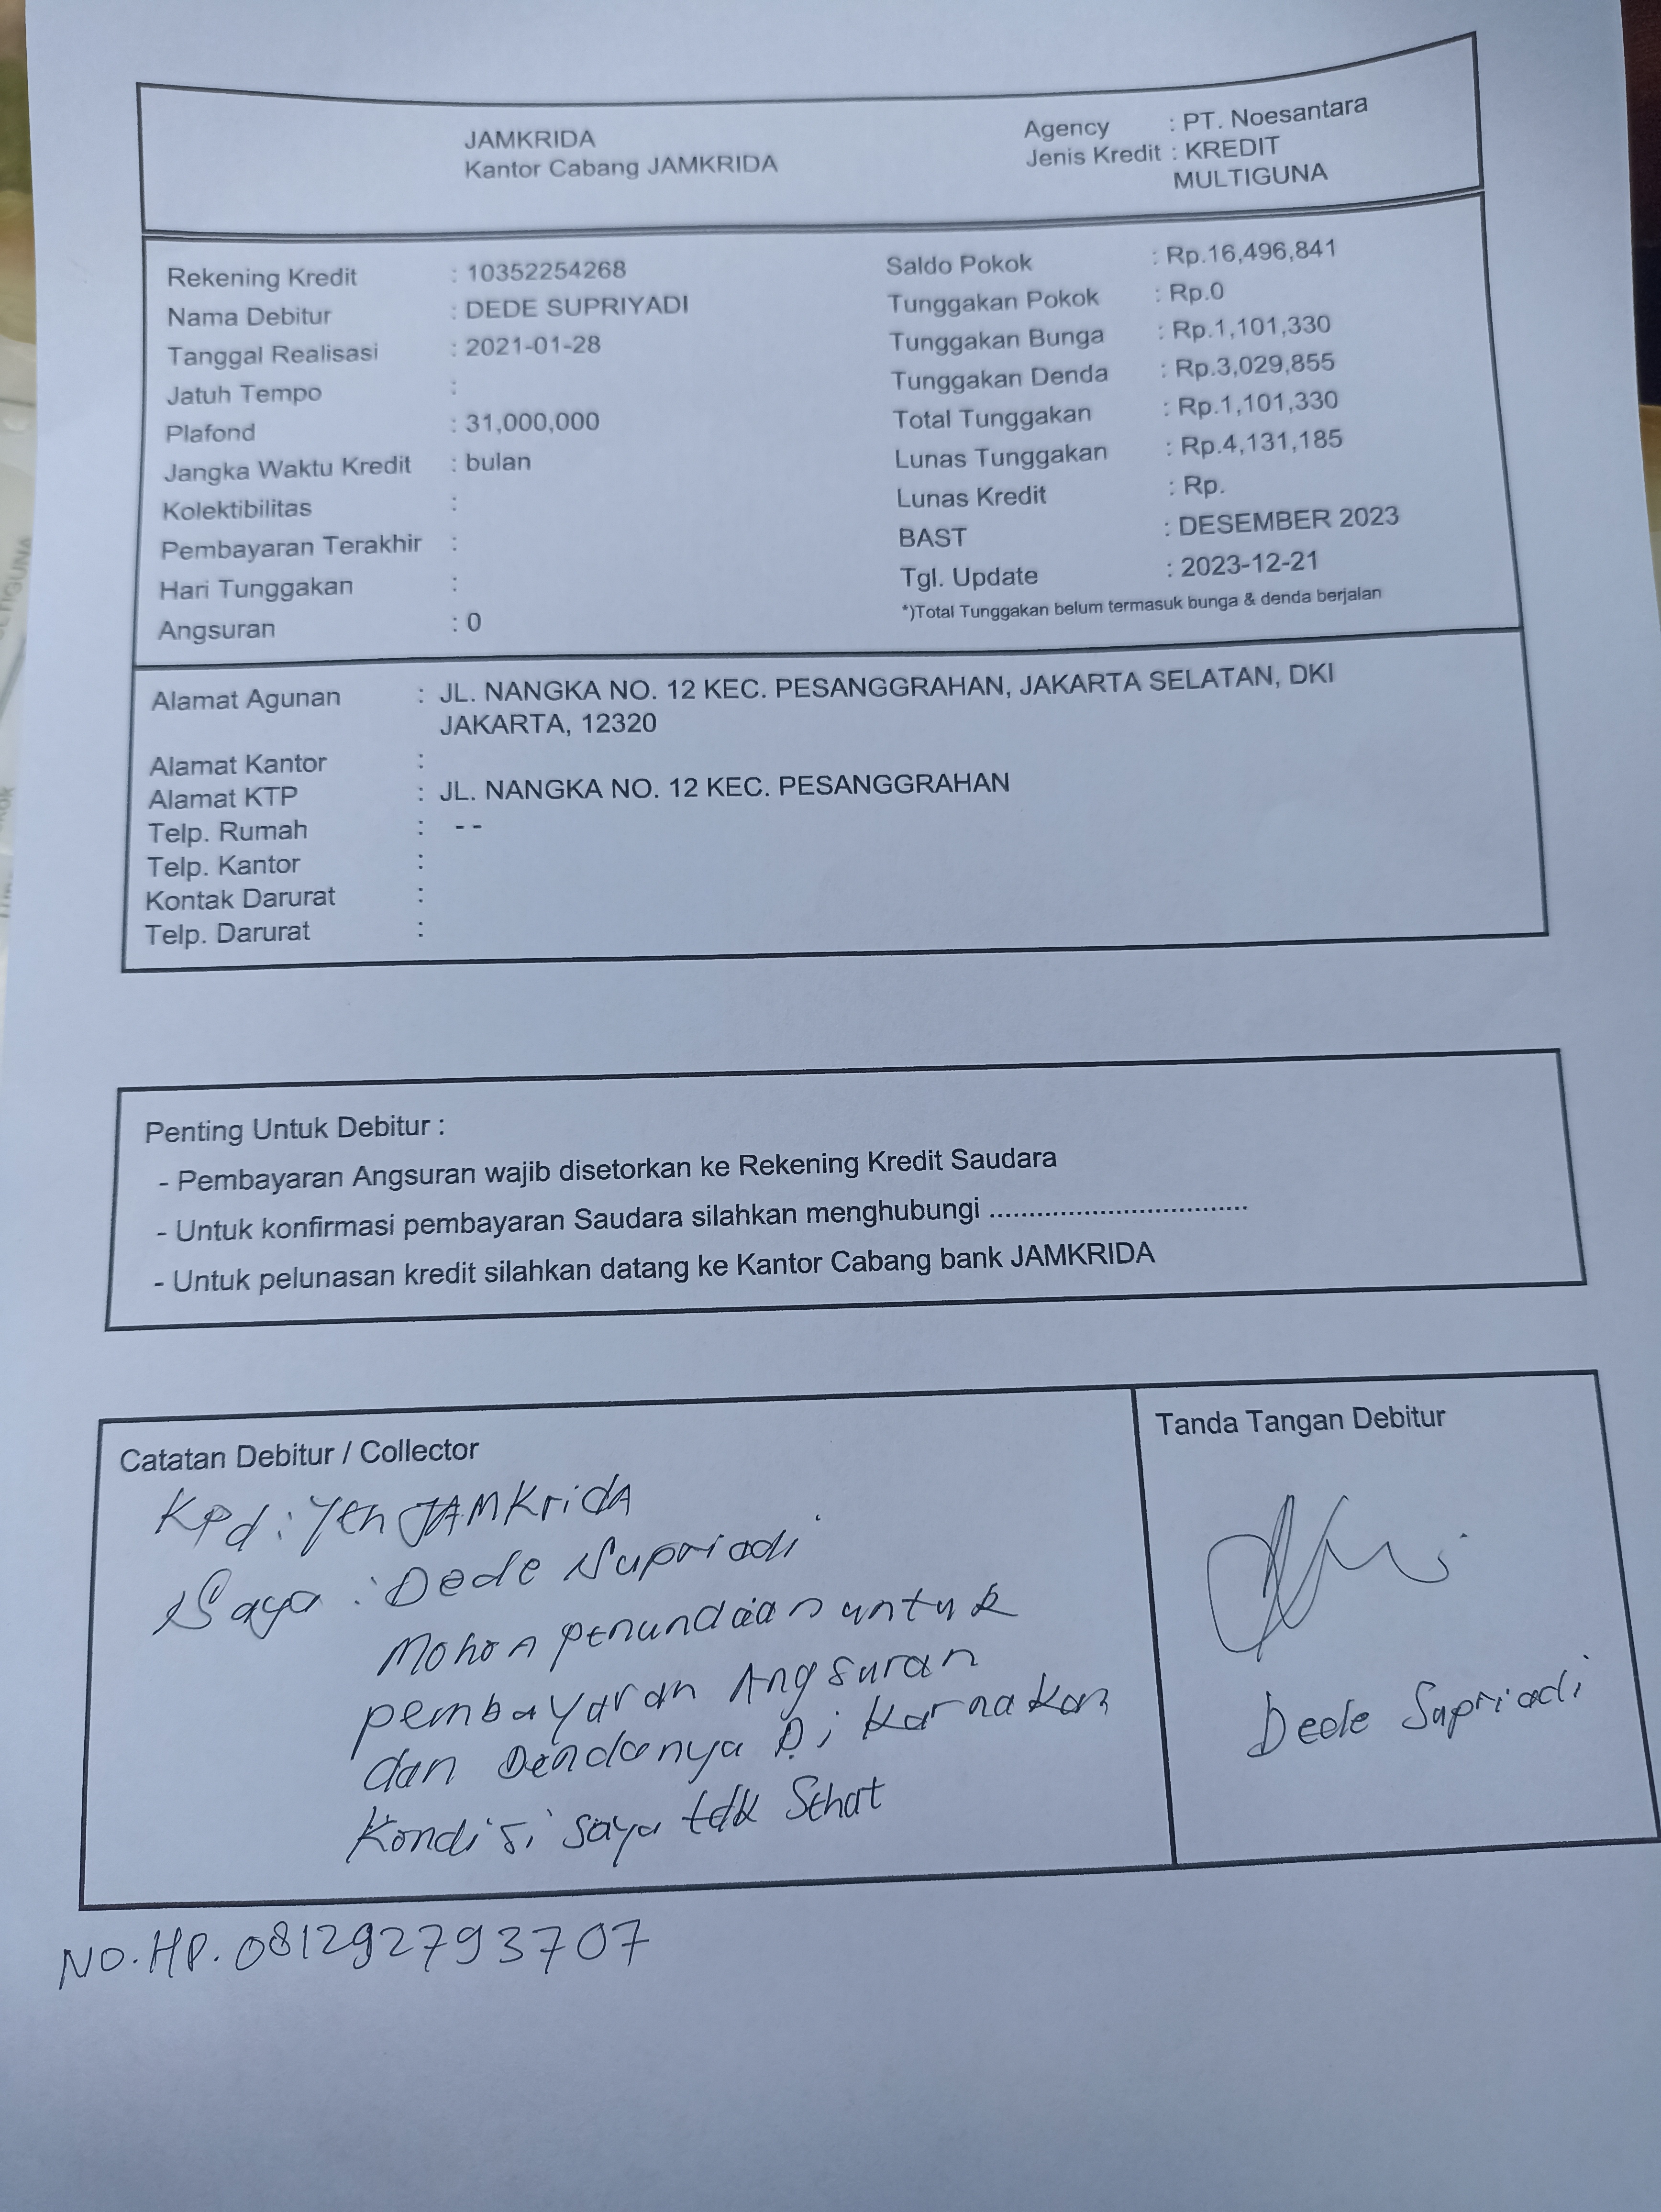 JAMKRIDA
Kantor Cabang JAMKRIDA
Agency : PT. Noesantara
Jenis Kredit : KREDIT
MULTIGUNA
Rekening Kredit : 10352254268
Nama Debitur : DEDE SUPRIYADI
Tanggal Realisasi : 2021-01-28
Jatuh Tempo :
Plafond : 31,000,000
Jangka Waktu Kredit : bulan
Kolektibilitas :
Pembayaran Terakhir :
Hari Tunggakan :
Angsuran : 0
Saldo Pokok : Rp.16,496,841
Tunggakan Pokok : Rp.0
Tunggakan Bunga : Rp.1,101,330
Tunggakan Denda : Rp.3,029,855
Total Tunggakan : Rp.1,101,330
Lunas Tunggakan : Rp.4,131,185
Lunas Kredit : Rp.
BAST : DESEMBER 2023
Tgl. Update : 2023-12-21
*)Total Tunggakan belum termasuk bunga & denda berjalan
Alamat Agunan : JL. NANGKA NO. 12 KEC. PESANGGRAHAN, JAKARTA SELATAN, DKI
JAKARTA, 12320
Alamat Kantor :
Alamat KTP : JL. NANGKA NO. 12 KEC. PESANGGRAHAN
Telp. Rumah : - -
Telp. Kantor :
Kontak Darurat :
Telp. Darurat :
Penting Untuk Debitur :
- Pembayaran Angsuran wajib disetorkan ke Rekening Kredit Saudara
- Untuk konfirmasi pembayaran Saudara silahkan menghubungi ................................
- Untuk pelunasan kredit silahkan datang ke Kantor Cabang bank JAMKRIDA
Catatan Debitur / Collector
Kpd : Yth JAMKridA
Saya : Dede Supriadi
Mohon penundaan untuk
pembayaran Angsuran
dan Dendanya Di Karnakan
Kondisi saya tdk Sehat
Tanda Tangan Debitur
Dede Supriadi
NO.HP. 081292793707